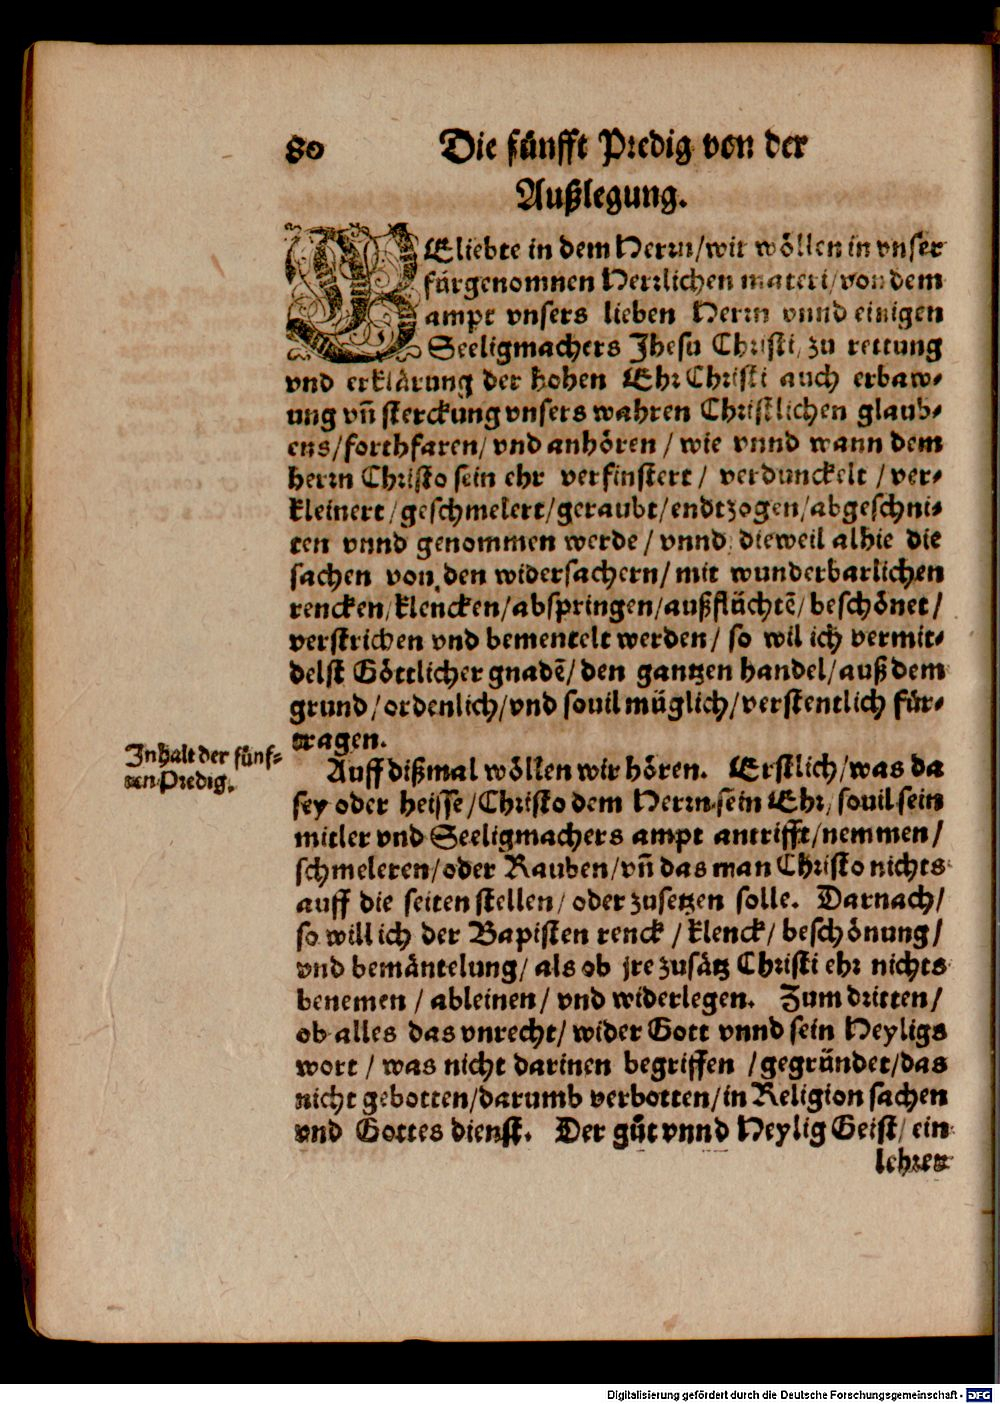 80 Die fünfft Predig von der
Außlegung.
GEliebte in dem Herrn/wir wöllen in vnser
fürgenomnen Herrlichen materi/von dem
ampt vnsers lieben Herrn vnnd einigen
Seeligmachers Jhesu Christi/ zu rettung
vnd erklärung der hohen Ehr Christi auch erbaw⸗
ung vñ sterckung vnsers wahren Christlichen glaub⸗
ens/forthfaren/ vnd anhören / wie vnnd wann dem
herrn Christo sein ehr verfinstert / verdunckelt / ver⸗
kleinert/geschmelert/geraubt/endtzogen/abgeschni⸗
ten vnnd genommen werde / vnnd dieweil alhie die
sachen von den widersachern/ mit wunderbarlichen
rencken/klencken/abspringen/außflüchtẽ/ beschönet/
verstrichen vnd bementelt werden/ so wil ich vermit⸗
delst Göttlicher gnadẽ/ den gantzen handel/auß dem
grund/ordenlich/vnd souil müglich/verstentlich für⸗
tragen.
Inhalt der fünf⸗
ten Predig.
Auff dißmal wöllen wir hören. Erstlich/was da
sey oder heisse/Christo dem Herrn sein Ehr/ souil sein
mitler vnd Seeligmachers ampt antrifft/nemmen/
schmeleren/oder Rauben/vñ das man Christo nichts
auff die seiten stellen/ oder zusetzen solle. Darnach/
so will ich der Bapisten renck / klenck/ beschönung/
vnd bemäntelung/ als ob jre zusätz Christi ehr nichts
benemen / ableinen/ vnd widerlegen. Zum dritten/
ob alles das vnrecht/ wider Gott vnnd sein Heyligs
wort / was nicht darinen begriffen /gegründet/das
nicht gebotten/darumb verbotten/in Religion sachen
vnd Gottes dienst. Der güt vnnd Heylig Geist/ ein
lehrer
Digitalisierung gefördert durch die Deutsche Forschungsgemeinschaft - DFG